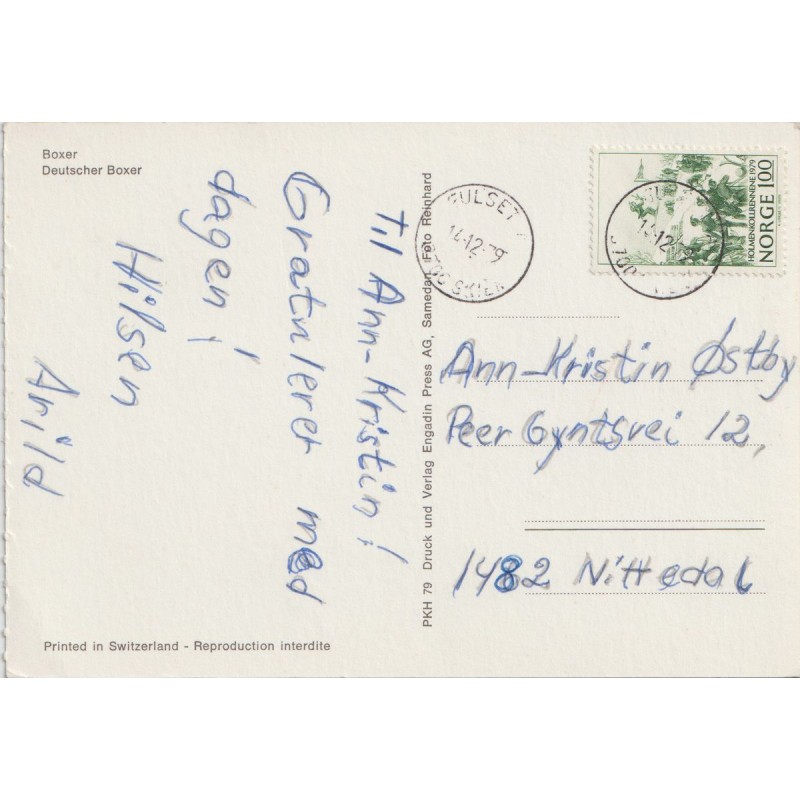 Boxer
Deutscher Boxer
Til Ann-Kristin!
Gratuleret med
dagen!
Hilsen
Arild
Printed in Switzerland - Reproduction interdite
PKH 79 Druck und Verlag Engadin Press AG, Samedan Foto Reinhard
GULSET
14.12.79
3700 SKIEN
HOLMENKOLLRENNENE 1979
NORGE 100
Ann-Kristin Østby
Peer Gyntsvei 12,
1482 Nittedal